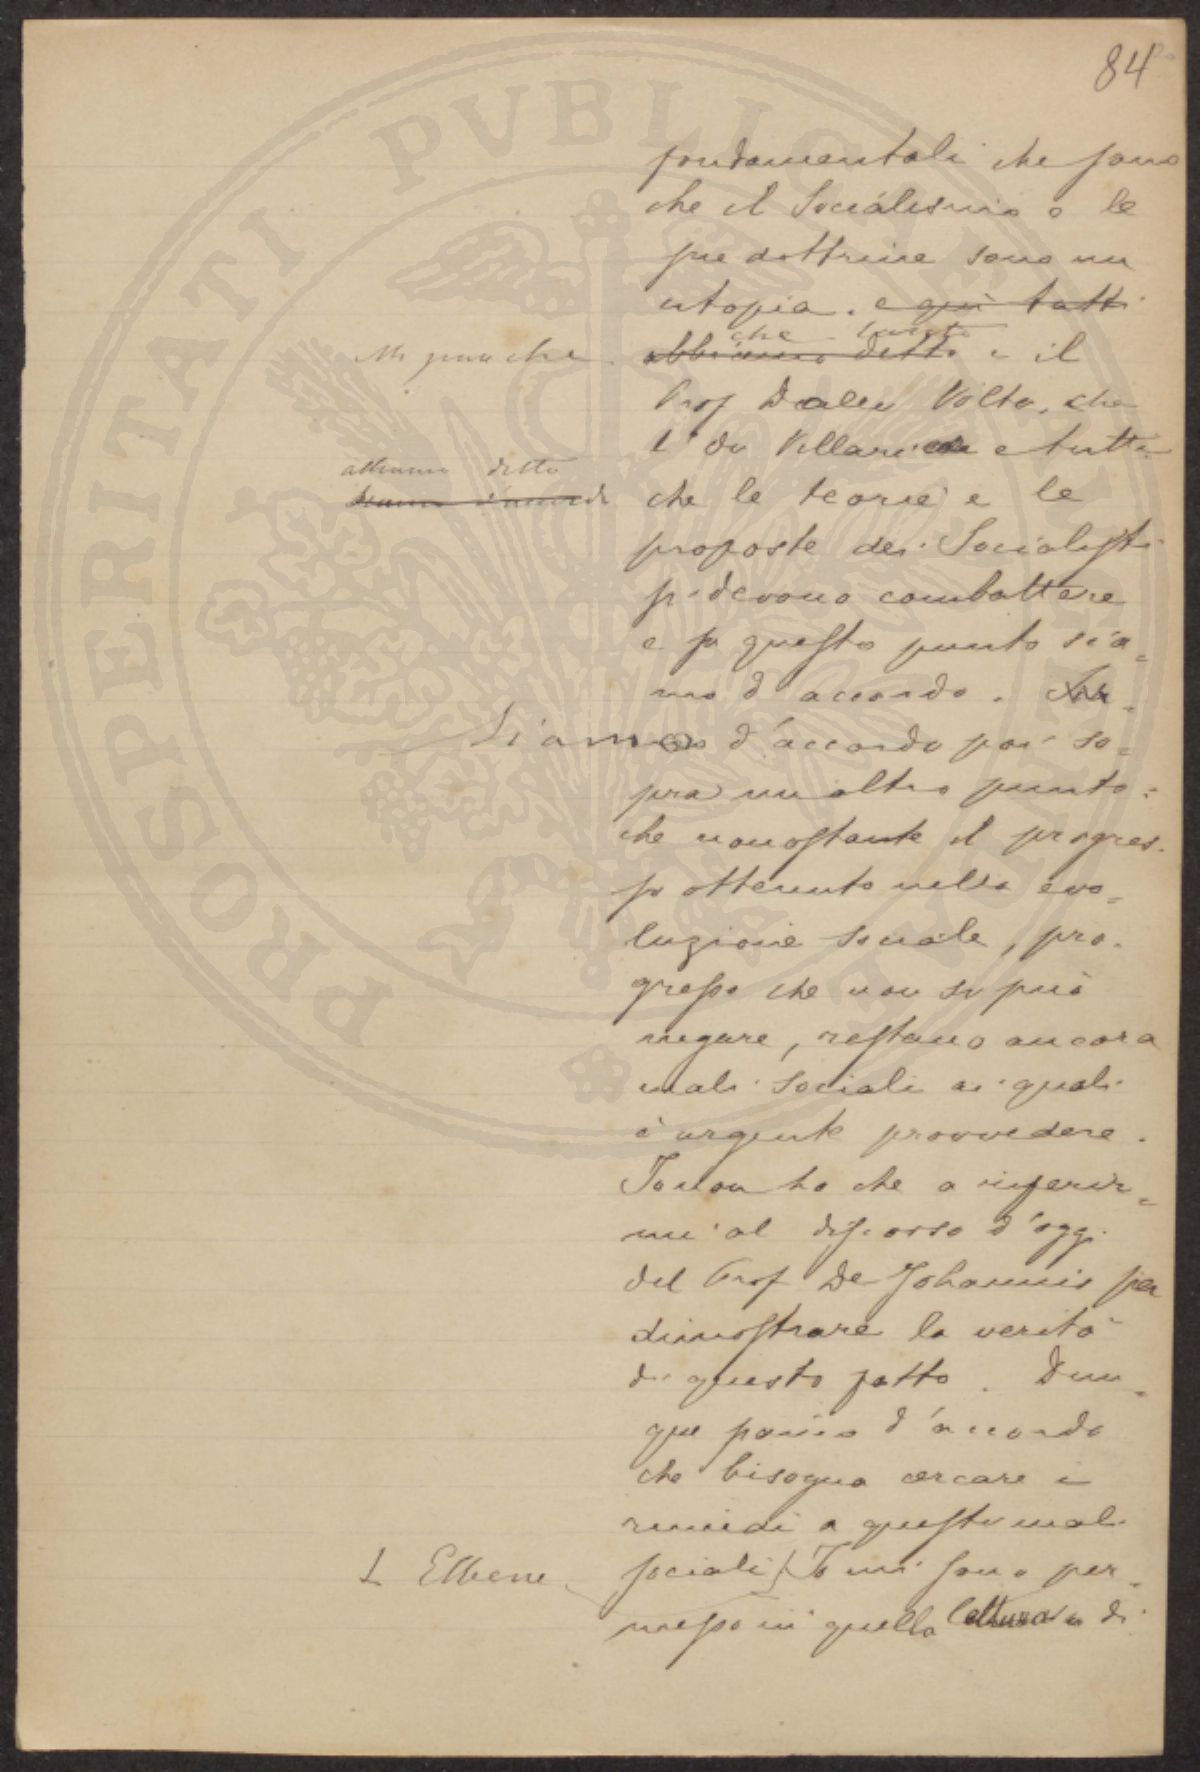 84
PROSPERITATI PVBLICAE
fondamentali che fano
che il Socialismo o le
sue dottrine sono un
utopia. e qui tutti
che tanto
Mi pare che abbiamo detto e il
Prof Dalla Volta, che
l' on Villari e tutti
abbiamo detto
d'accordo che le teorie e le
proposte dei Socialisti
si devono combattere
e su questo punto sia=
mo d'accordo.
Siamo d'accordo poi so=
pra un altro punto:
che nonostante il progres-
so ottenuto nella evo=
luzione sociale, pro-
gresso che non si può
negare, restano ancora
mali sociali ai quali
è urgente provvedere.
Io non ho che a riferir=
mi al discorso d'oggi
del Prof De Johannis per
dimostrare la verità
di questo fatto. Dun=
que siamo d'accordo
che bisogna cercare i
rimedi a questi mali
L Ebbene sociali / Io mi sono per=
messo in quella lettura di